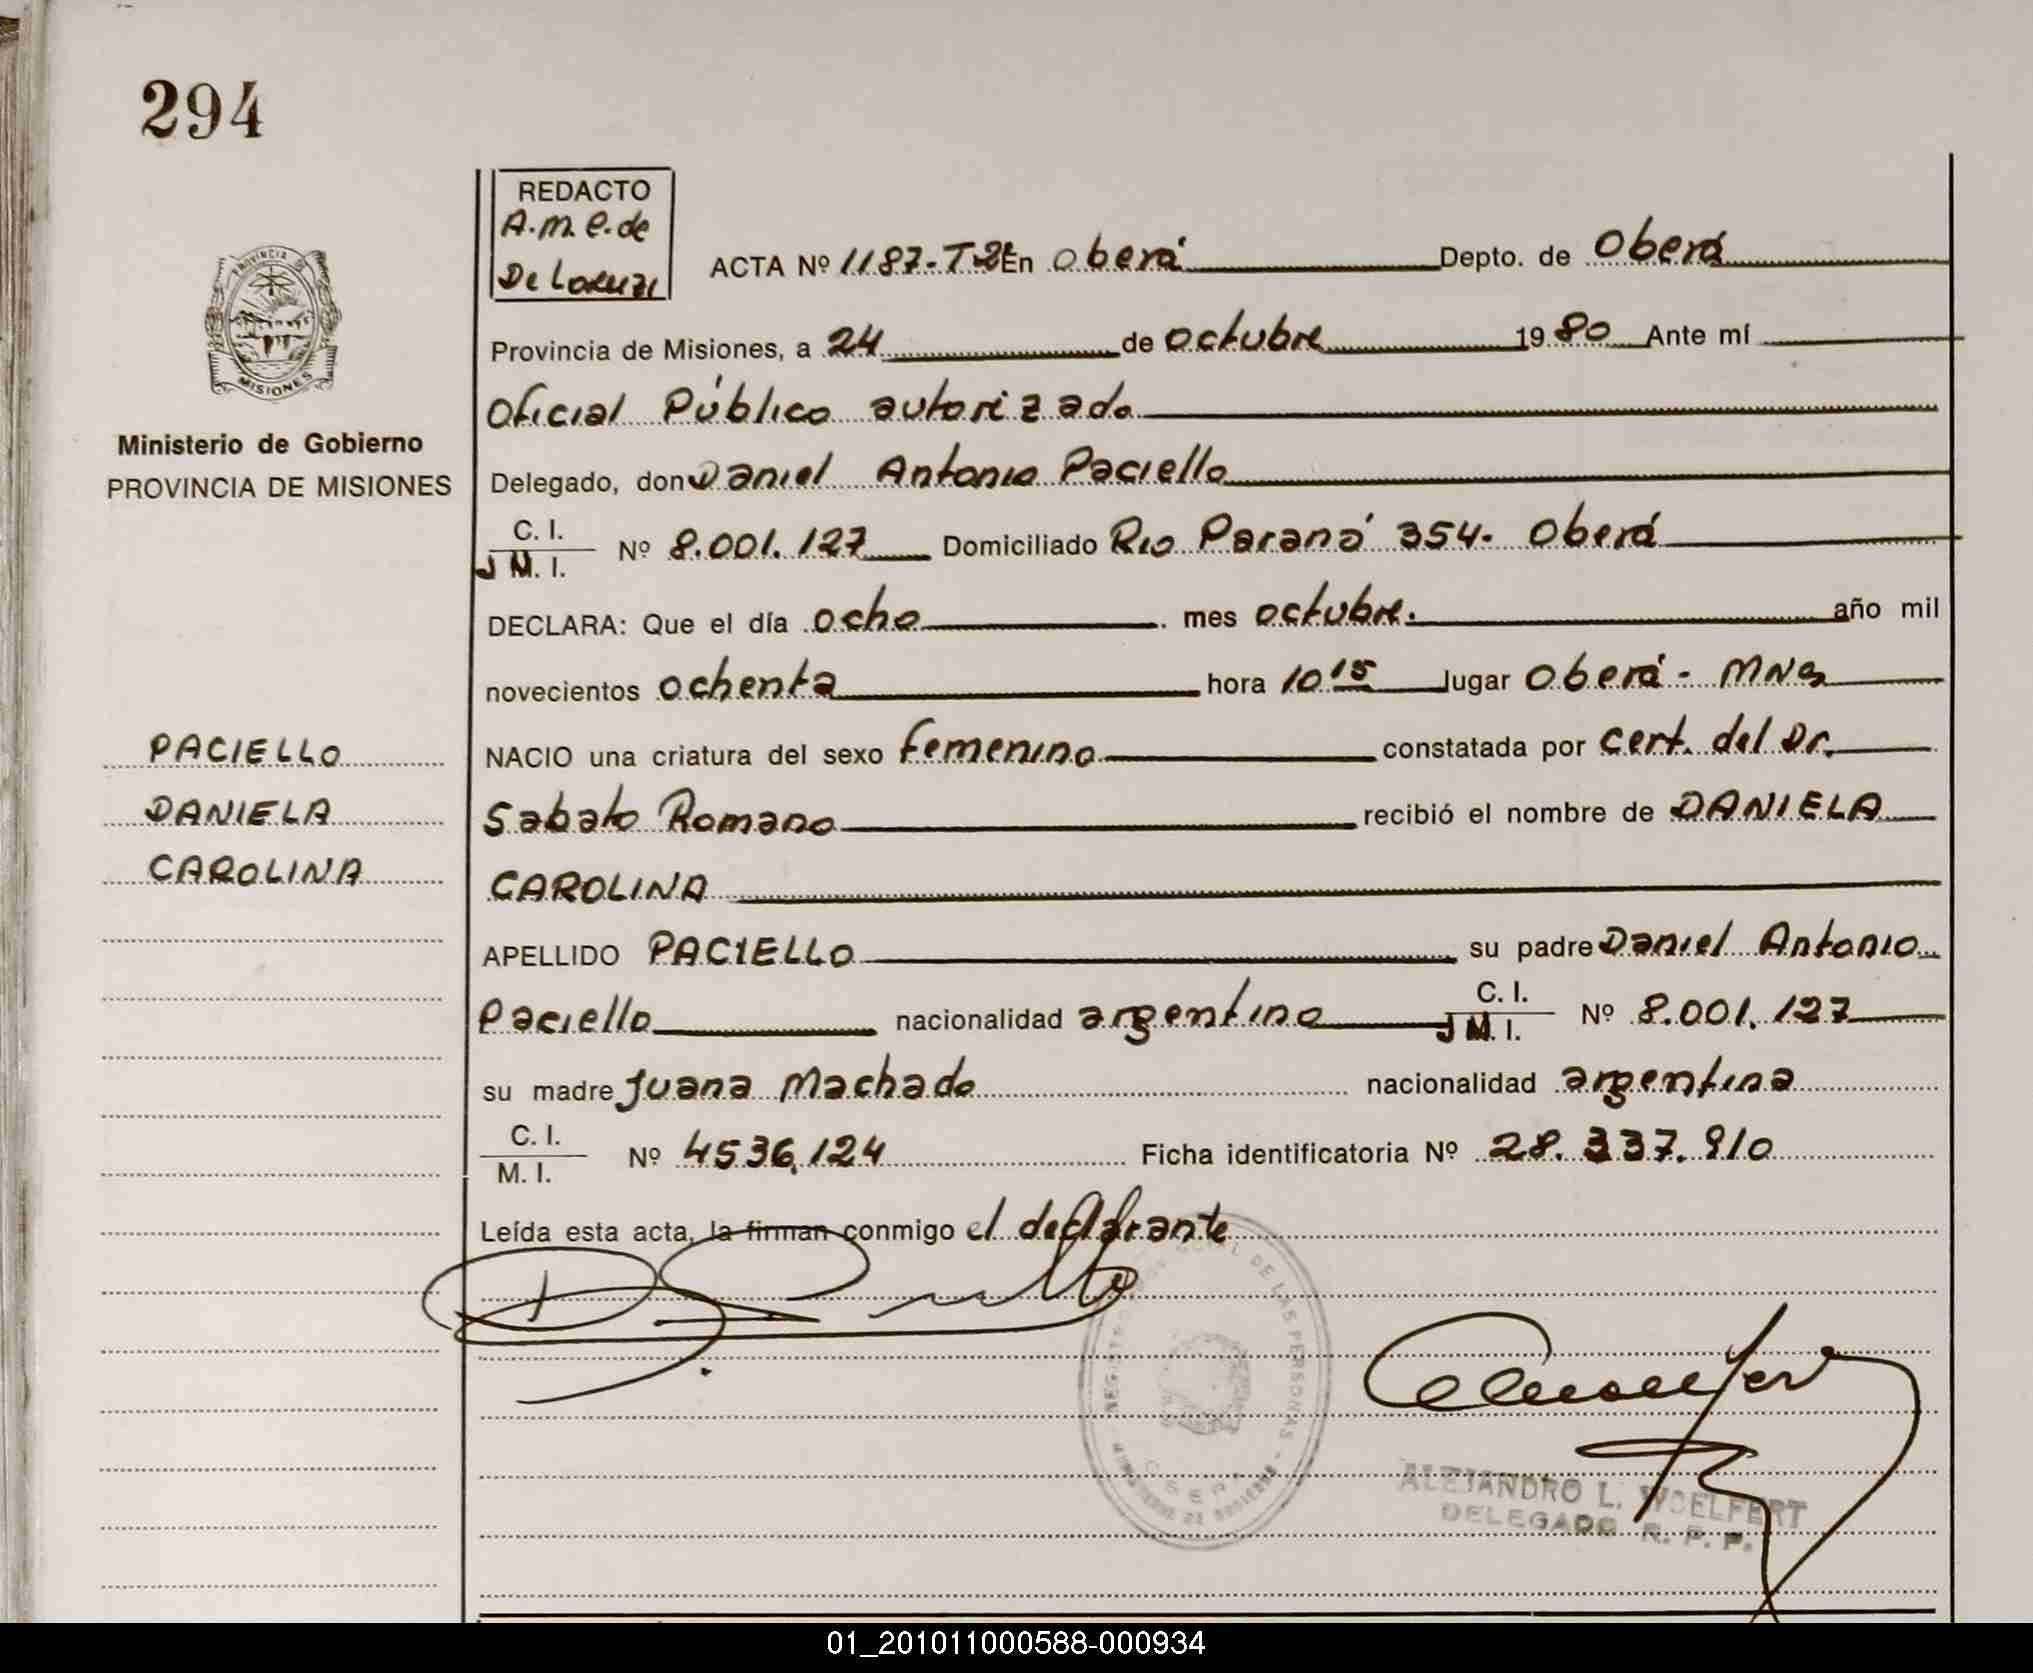 294
REDACTO
A.M.E. de
De Lorenzi
PROVINCIA DE
MISIONES
Ministerio de Gobierno
PROVINCIA DE MISIONES
ACTA Nº 1187-T-2º En Oberá Depto. de Oberá
Provincia de Misiones, a 24 de octubre 1980 Ante mí
Oficial Público autorizado
Delegado, don Daniel Antonio Paciello
C. I.
M. I. Nº 8.001.127 Domiciliado Rio Paraná 354- Oberá
DECLARA: Que el día ocho mes octubre. año mil
novecientos ochenta hora 10 15 lugar Oberá - MNS
NACIO una criatura del sexo femenino constatada por cert. del Dr.
Sabato Romano recibió el nombre de DANIELA
CAROLINA
PACIELLO
DANIELA
CAROLINA
APELLIDO PACIELLO su padre Daniel Antonio
Paciello nacionalidad argentino C. I.
M. I. Nº 8.001.127
su madre Juana Machado nacionalidad argentina
C. I.
M. I. Nº 4536.124 Ficha identificatoria Nº 28.337.910
Leída esta acta, la firman conmigo el declarante
DE LAS PERSONAS
ALEJANDRO L. WOELFERT
DELEGADO R. P. P.
01_201011000588-000934